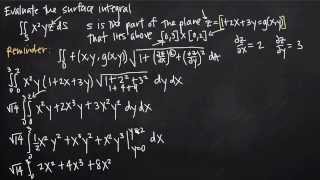 Evaluate the surface integral
∬_S x²yz dS S is the part of the plane z=1+2x+3y=g(x,y)
that lies above [0,3]×[0,2] ∂z/∂x = 2 ∂z/∂y = 3
Reminder: ∬_D f(x,y,g(x,y)) √(1+(∂z/∂x)²+(∂z/∂y)²) dA
∫₀³∫₀² x²y (1+2x+3y) √(1+2²+3²) dy dx
1+4+9
√14 ∫₀³∫₀² x²y+2x³y+3x²y² dy dx
√14 ∫₀³ ½x²y²+x³y²+x²y³ |y=2 y=0 dx
√14 ∫₀³ 2x²+4x³+8x²